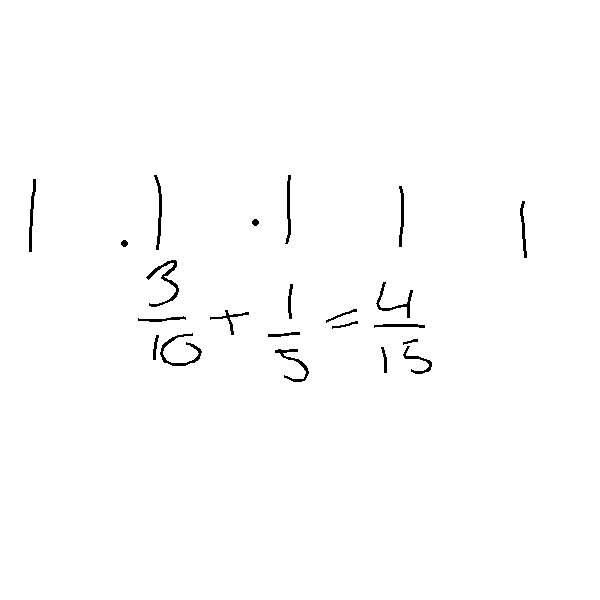 | .| .| | |
3/10 + 1/5 = 4/15